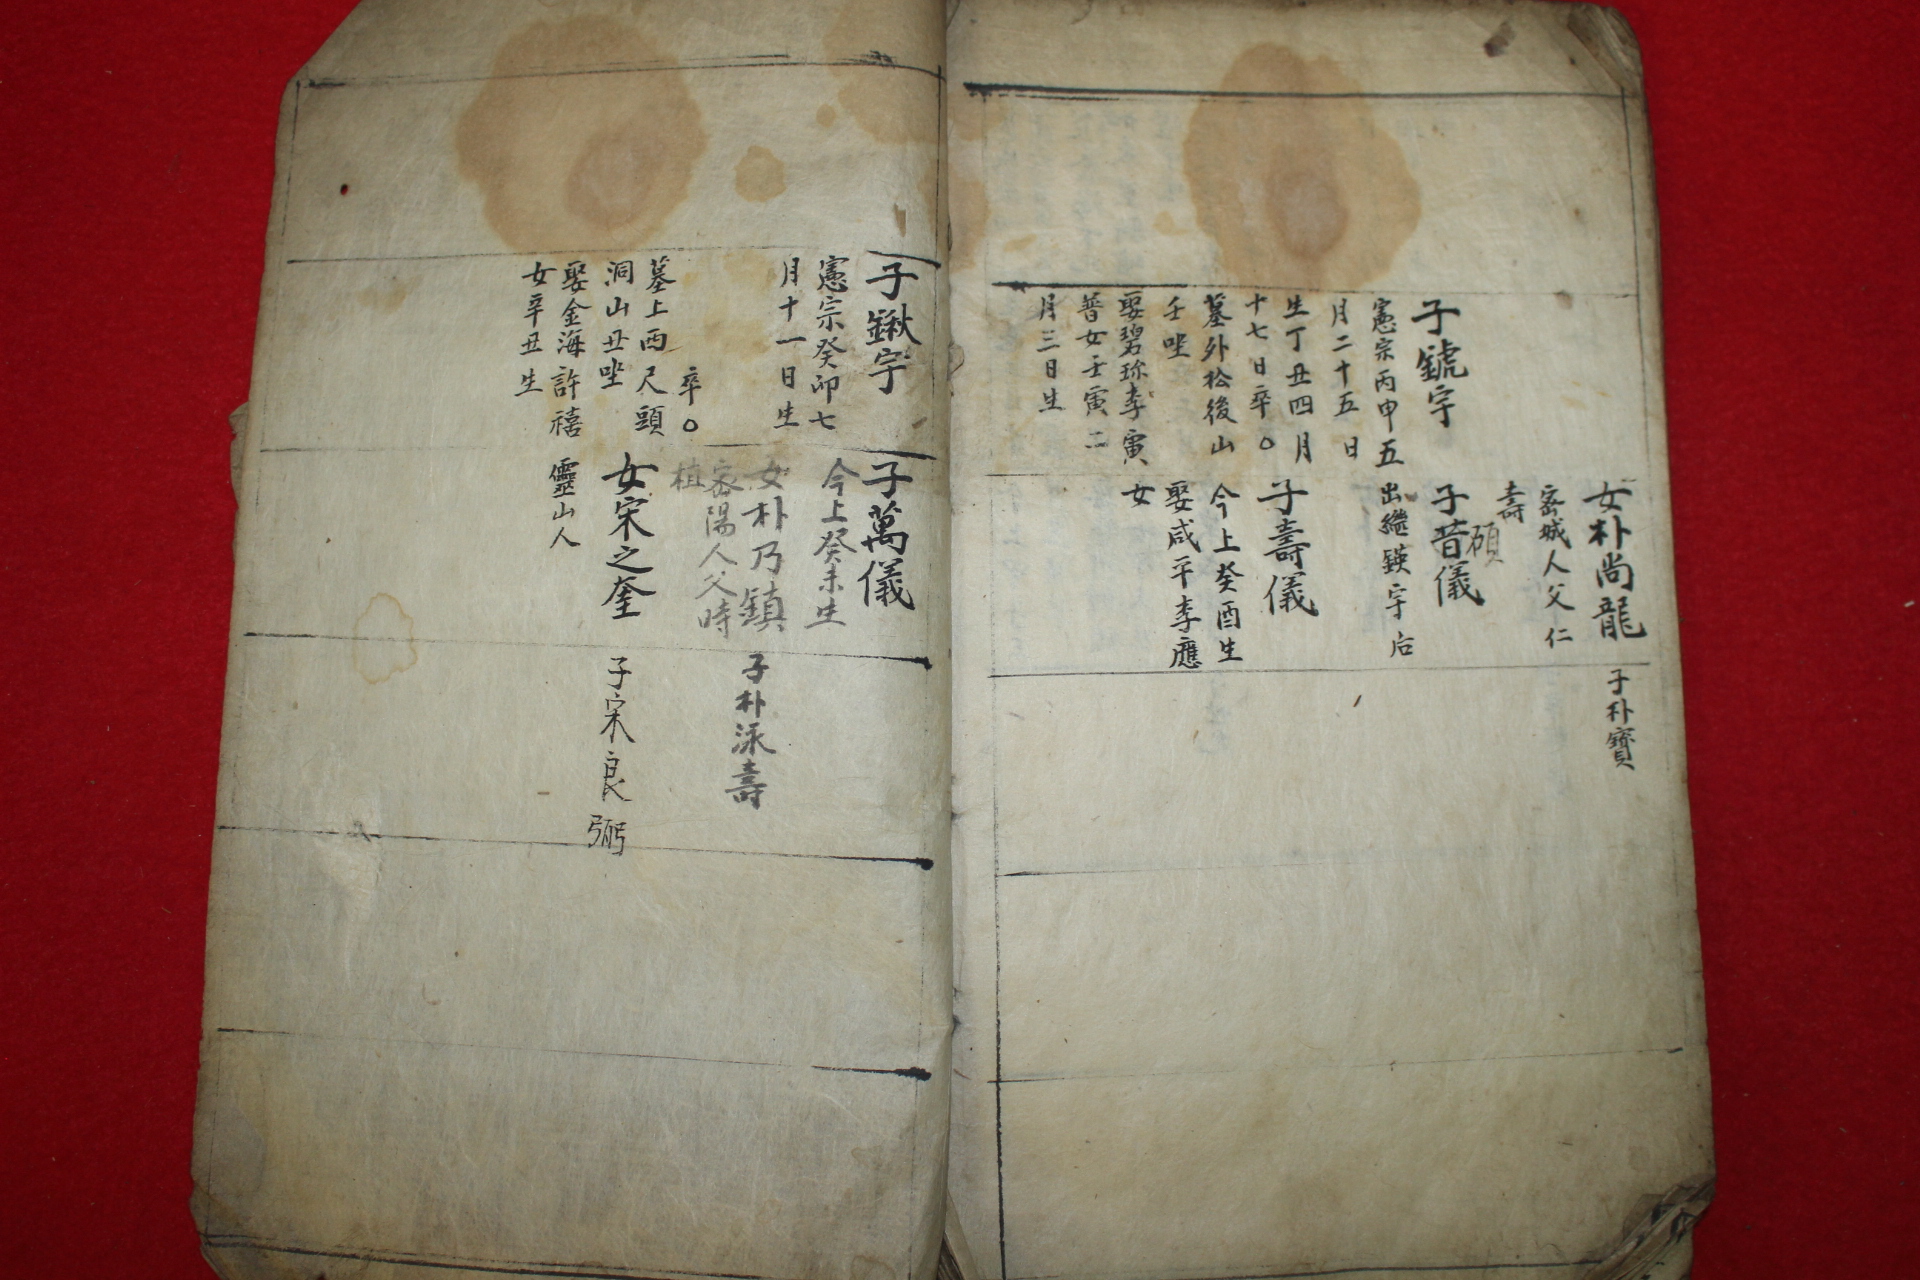 女朴尚龍
密城人父仁
壽
碩
子昔儀
出繼鍈宇后
子壽儀
今上癸酉生
娶咸平李應
女
子朴寶
子號宇
憲宗丙申五
月二十五日
生丁丑四月
十七日卒○
墓外松後山
壬坐
娶碧珎李寅
普女壬寅二
月三日生
子鍬宇
憲宗癸卯七
月十一日生
卒○
墓上西尺頭
洞山丑坐
娶金海許禧
女辛丑生
子萬儀
今上癸未生
女朴乃鎮
密陽人父時
植
女宋之奎
靈山人
子朴泳壽
子宋良弼